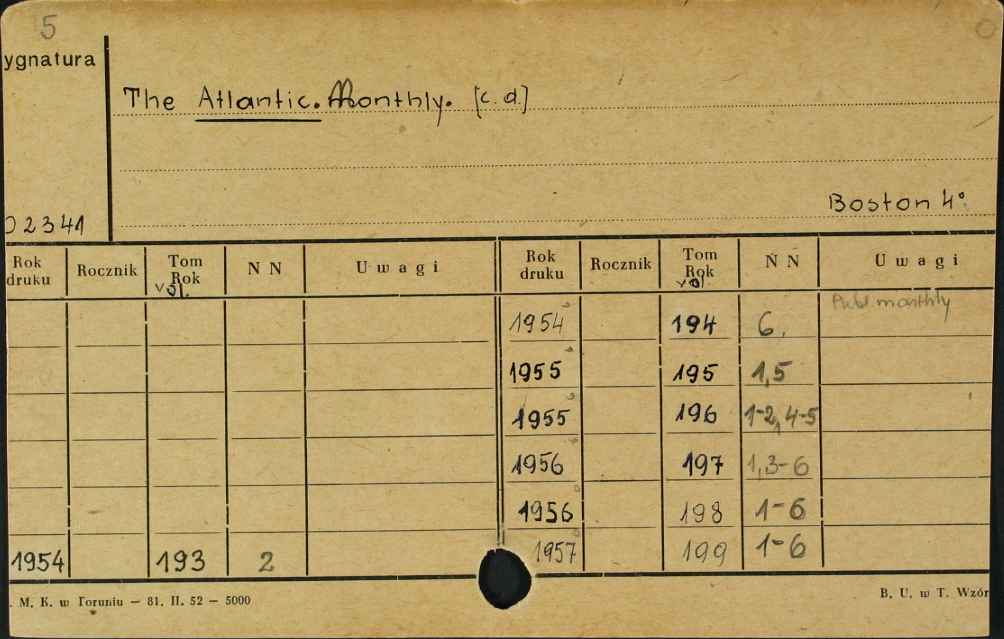 5
ygnatura
The Atlantic. Monthly. [c. d.]
Boston 4°
02341
Rok druku Rocznik Tom Rok vol. N N Uwagi Rok druku Rocznik Tom Rok vol. N N Uwagi
1954 194 6. Publ. monthly
1955 195 1,5
1955 196 1-2, 4-5
1956 197 1,3-6
1956 198 1-6
1954 193 2 1957 199 1-6
. M. K. w Toruniu — 81. II. 52 — 5000
B. U. w T. Wzór